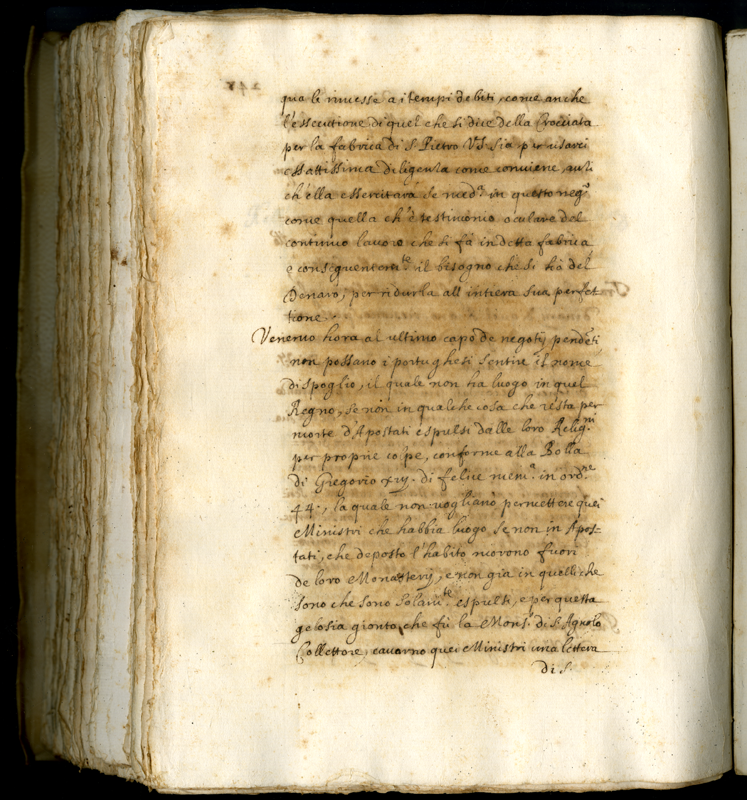 quali rimesse a i tempi debiti, come anche
l'essecutione di quel che si dice della Crociata
per la fabrica di S. Pietro V.S. sia per usarci
esattissima diligenza come conviene,
ch'ella essercitarà se med.ª in questo neg.º
come quella ch'è testimonio oculare del
continuo lavoro che si fà in detta fabrica
e conseguentem.te il bisogno che si hà del
Denaro, per ridurla all'intiera sua perfet-
tione.
Venemo hora al ultimo capo de negotij pendẽti
non possano i portughesi sentire il nome
di spoglio, il quale non ha luogo in quel
Regno, se non in qualche cosa che resta per
morte d'Apostati espulsi dalle loro Relig.ni
per proprie colpe, conforme alla Bolla
di Gregorio xiij. di felice mem.ª in ord.ne
44., la quale non vogliano permettere quei
Ministri che habbia luogo se non in Apos-
tati, che deposto l'habito morono fuori
de loro Monasterij, e non già in quelli che
sono che sono solam.te espulsi, e per questa
gelosia gionto che fù la Mons.r di S. Agnolo
Collettore, cavorno quei Ministri una lettera
di S.